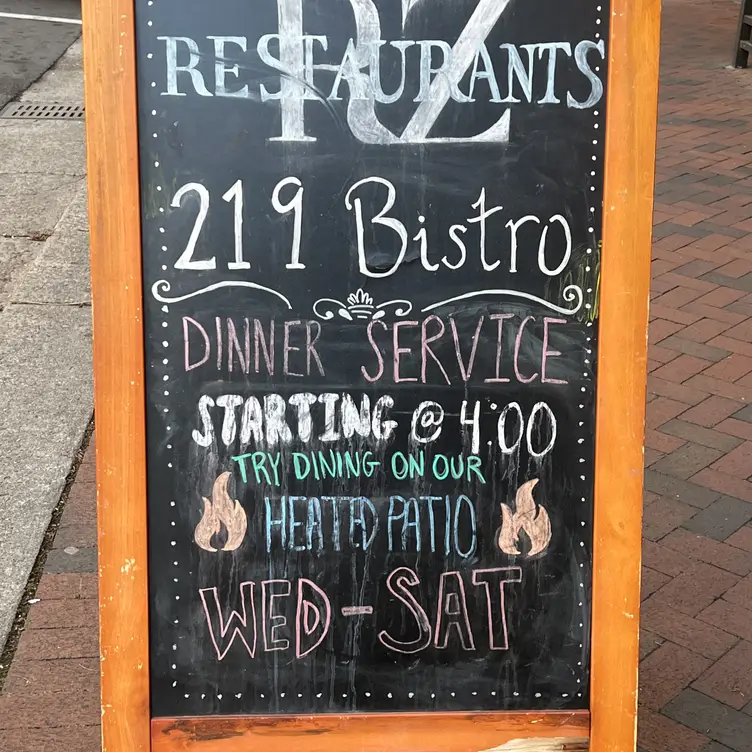 RZ
RESTAURANTS
219 Bistro
DINNER SERVICE
STARTING @ 4:00
TRY DINING ON OUR
HEATED PATIO
WED-SAT